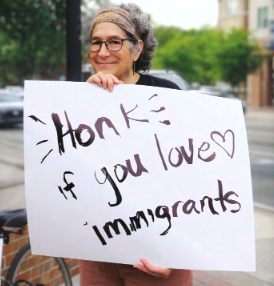 Honk
if you love ♡
immigrants